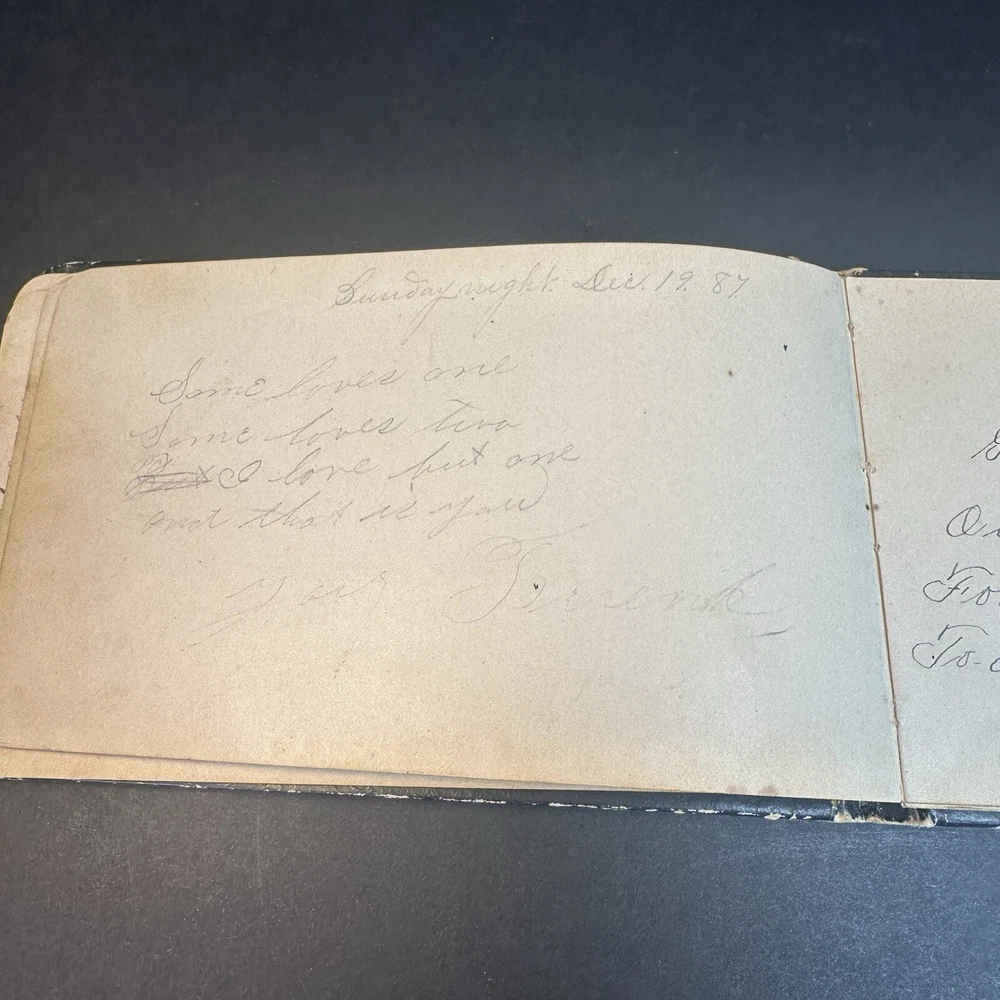 Sunday night. Dec. 19. 87
Some loves one
Some loves two
I love but one
and that is you
your Frienk